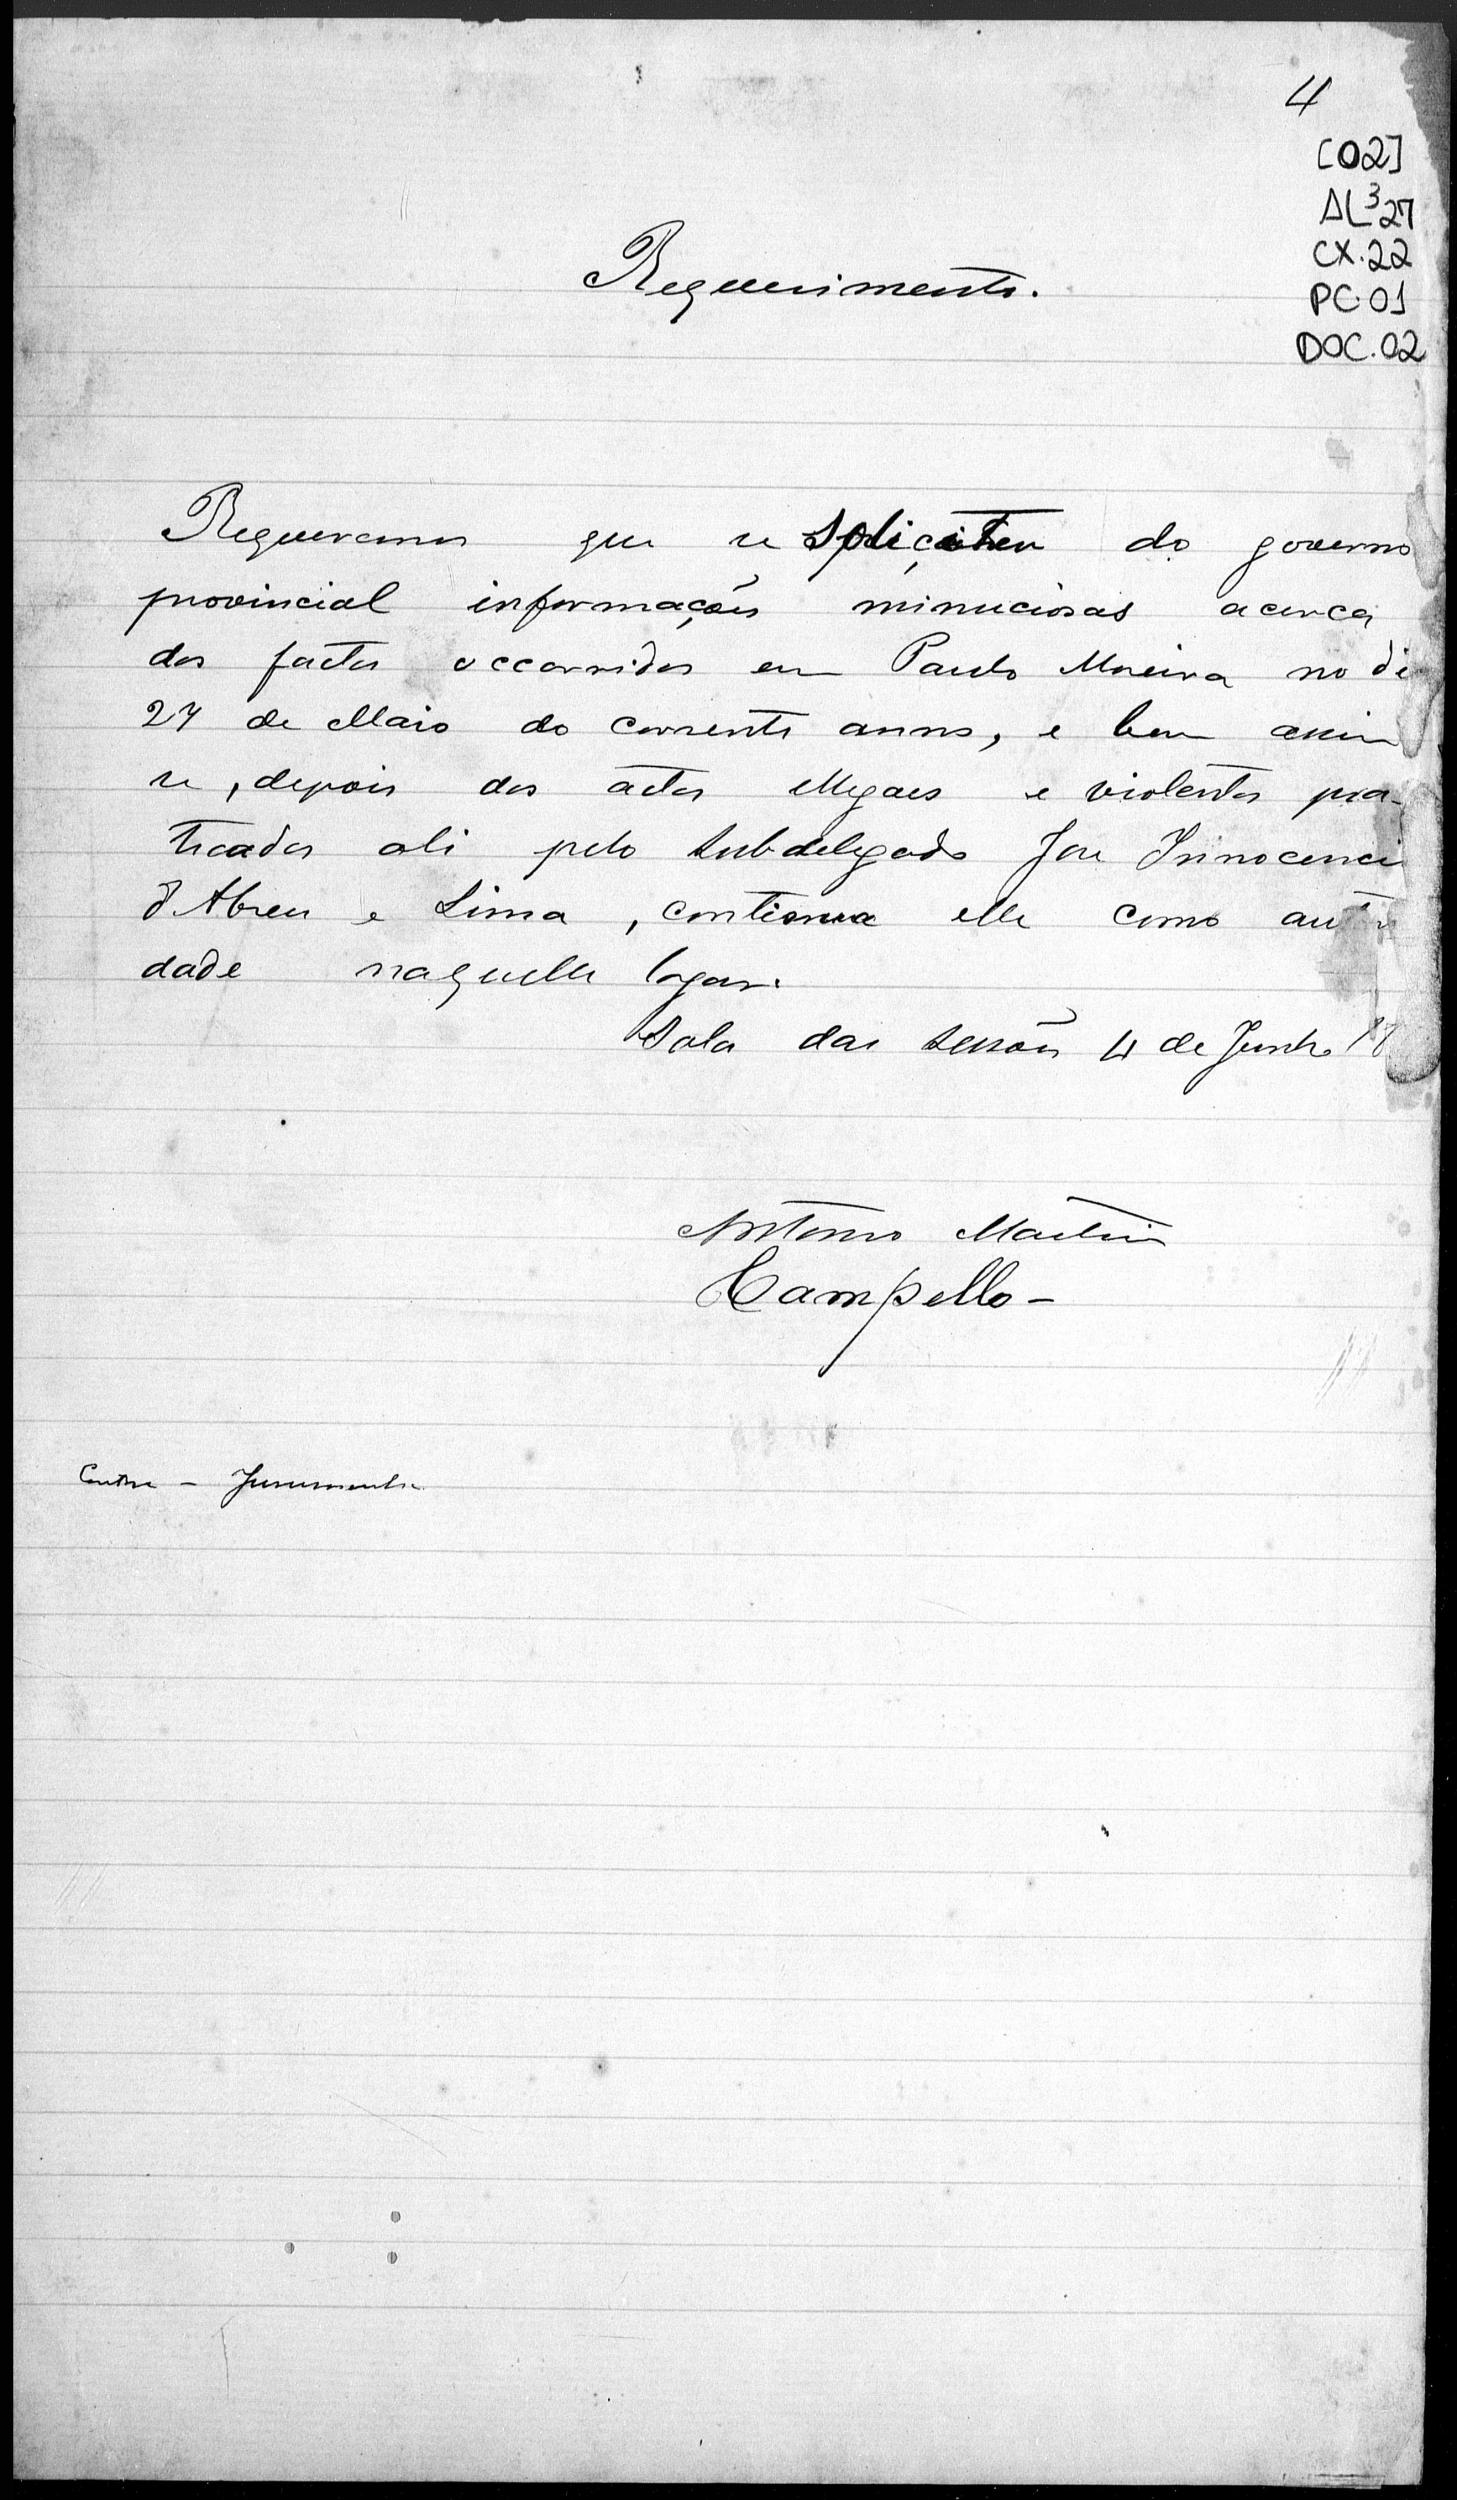 4
[02]
AL³27
CX.22
PC.01
DOC.02
Requerimento.
Requeremos que se solicitem do governo
provincial informações minuciosas acerca
dos factos occorridos em Paulo Moreira no di
27 de Maio do corrente anno, e bem assim
se, depois dos actos illegaes e violentos pra-
ticados ali pelo subdelegado José Innocenci
d'Abreu e Lima, continua elle como auto
dade naquelle logar.
Sala das sessões 4 de Junho 18
Antonio Martins
Campello -